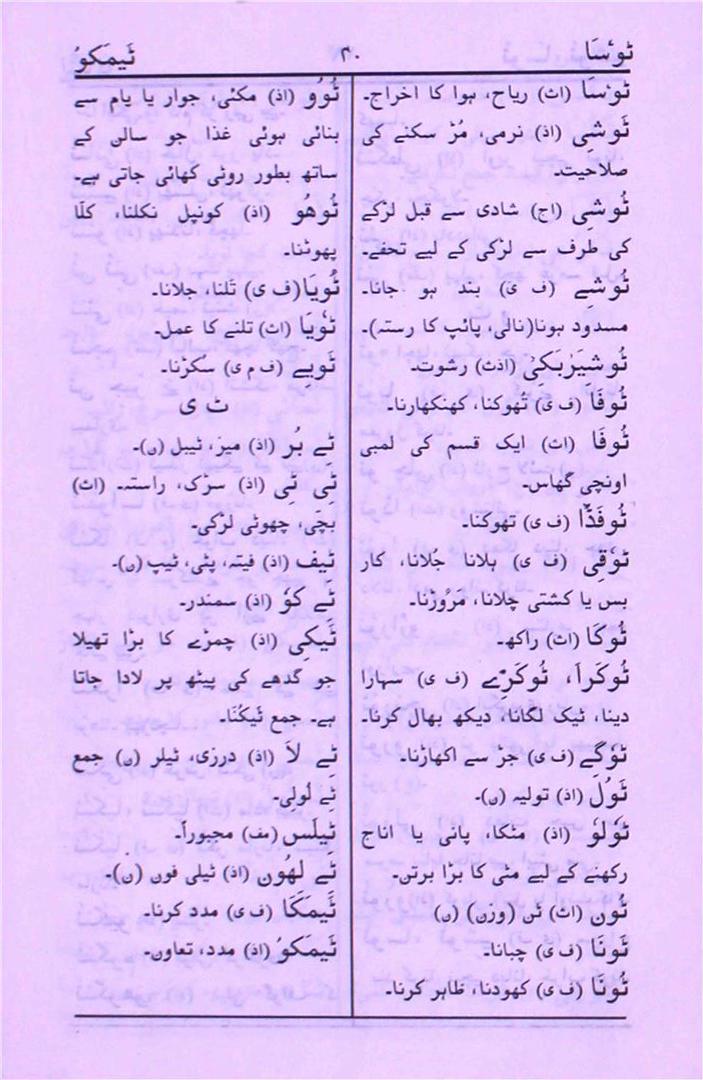 ٹوسَا ۴۰ ٹَیمکو
ٹوسَا (اث) ریاح، ہوا کا اخراج۔
ٹَوشِی (اذ) نرمی، مُڑ سکنے کی
صلاحیت۔
ٹُوشِی (اج) شادی سے قبل لڑکے
کی طرف سے لڑکی کے لیے تحفے۔
ٹُوشے (ف ی) بند ہو جانا۔
مسدود ہونا(نالی، پائپ کا رستہ)۔
ٹُوشیَربَکیٔ (اذث) رشوت۔
ٹُوفَا (ف ی) تُھوکنا، کھنکھارنا۔
ٹُوفَا (اث) ایک قسم کی لمبی
اونچی گھاس۔
ٹُوفَڈَا (ف ی) تھوکنا۔
ٹوقِی (ف ی) ہلانا جُلانا، کار
بس یا کشتی چلانا، مَروڑنا۔
ٹُوکَا (اث) راکھ۔
ٹُوکَرا، ٹُوکَرّے (ف ی) سہارا
دینا، ٹیک لگانا، دیکھ بھال کرنا۔
ٹوگے (ف ی) جڑ سے اکھاڑنا۔
ٹَولُ (اذ) تولیہ (ن)۔
ٹولو (اذ) مٹکا، پانی یا اناج
رکھنے کے لیے مٹی کا بڑا برتن۔
ٹُون (اث) ٹن (وزن) (ن)
ٹَونَا (ف ی) چبانا۔
ٹُونَا (ف ی) کھودنا، ظاہر کرنا۔
ٹُووو (اذ) مکئی، جوار یا یام سے
بنائی ہوئی غذا جو سالن کے
ساتھ بطور روٹی کھائی جاتی ہے۔
ٹُوھُو (اذ) کونپل نکلنا، کلّا
پھوٹنا۔
ٹُویَا(ف ی) تَلنا، جلانا۔
ٹویَا (اث) تلنے کا عمل۔
ٹَویے (ف م ی) سکڑنا۔
ٹ ی
ٹے بُر (اذ) میز، ٹیبل (ن)۔
ٹِی ٹِی (اذ) سڑک، راستہ۔ (اث)
بچّی، چھوٹی لڑکی۔
ٹیف (اذ) فیتہ، پٹی، ٹیپ (ن)۔
ٹے کو (اذ) سمندر۔
ٹَیکِی (اذ) چمڑے کا بڑا تھیلا
جو گدھے کی پیٹھ پر لادا جاتا
ہے۔ جمع ٹَیکُنَا۔
ٹے لَا (اذ) درزی، ٹیلر (ن) جمع
ٹے لُولِی۔
ٹِیلَس (مف) مجبوراً۔
ٹے لھُون (اذ) ٹیلی فون (ن)۔
ٹَیمَکَا (ف ی) مدد کرنا۔
ٹَیمَکو (اذ) مدد، تعاون۔